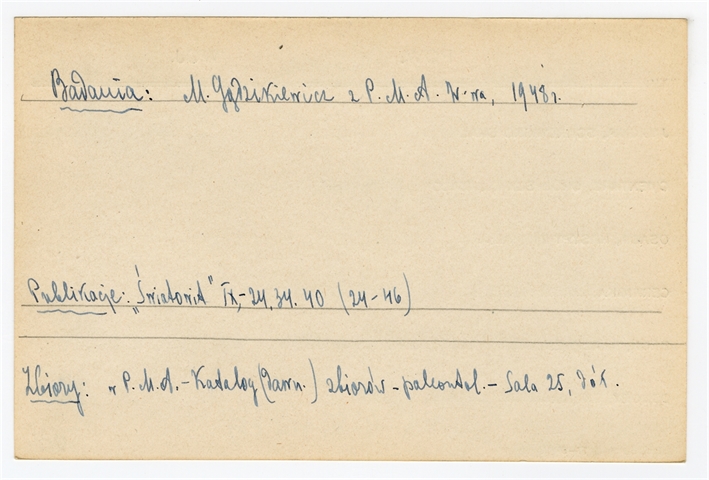 Badania: M. Gądzikiewicz z P. M. A. W-wa, 1948 r.
Publikacje: „Światowit" IX, - 24, 34. 40 (24-46)
Zbiory: w P. M. A. - Katalog (dawn.) zbiorów - paleontol. - Sala 25, dół.